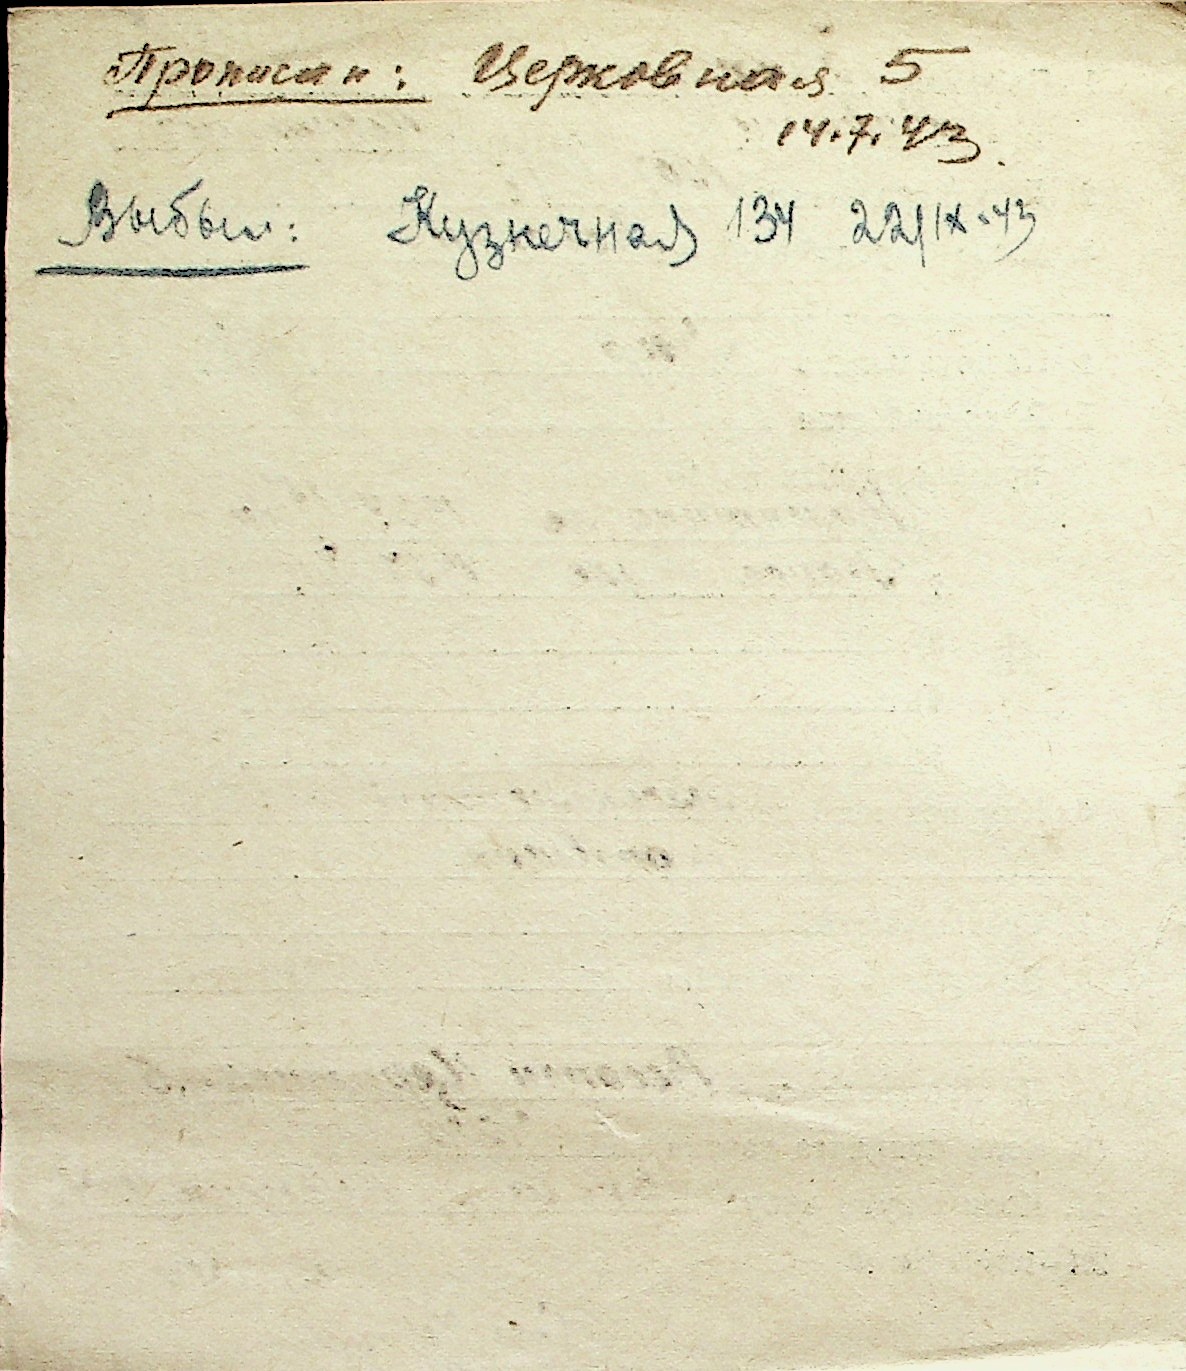 Прописан: Церковная 5
14.7.43.
Выбыл: Кузнечная 134 22/IX-43